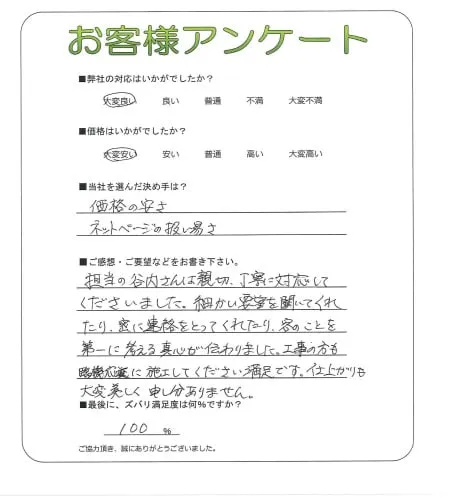 お客様アンケート
■弊社の対応はいかがでしたか？
大変良い 良い 普通 不満 大変不満
■価格はいかがでしたか？
大変安い 安い 普通 高い 大変高い
■当社を選んだ決め手は？
価格の安さ
ネットページの扱い易さ
■ご感想・ご要望などをお書き下さい。
担当の谷内さんは親切、丁寧に対応して
くださいました。細かい要望を聞いてくれ
たり、密に連絡をとってくれたり、客のことを
第一に考える真心が伝わりました。工事の方も
に施工してください満足です。仕上がりも
大変美しく申し分ありません。
■最後に、ズバリ満足度は何％ですか？
100 %
ご協力頂き、誠にありがとうございました。